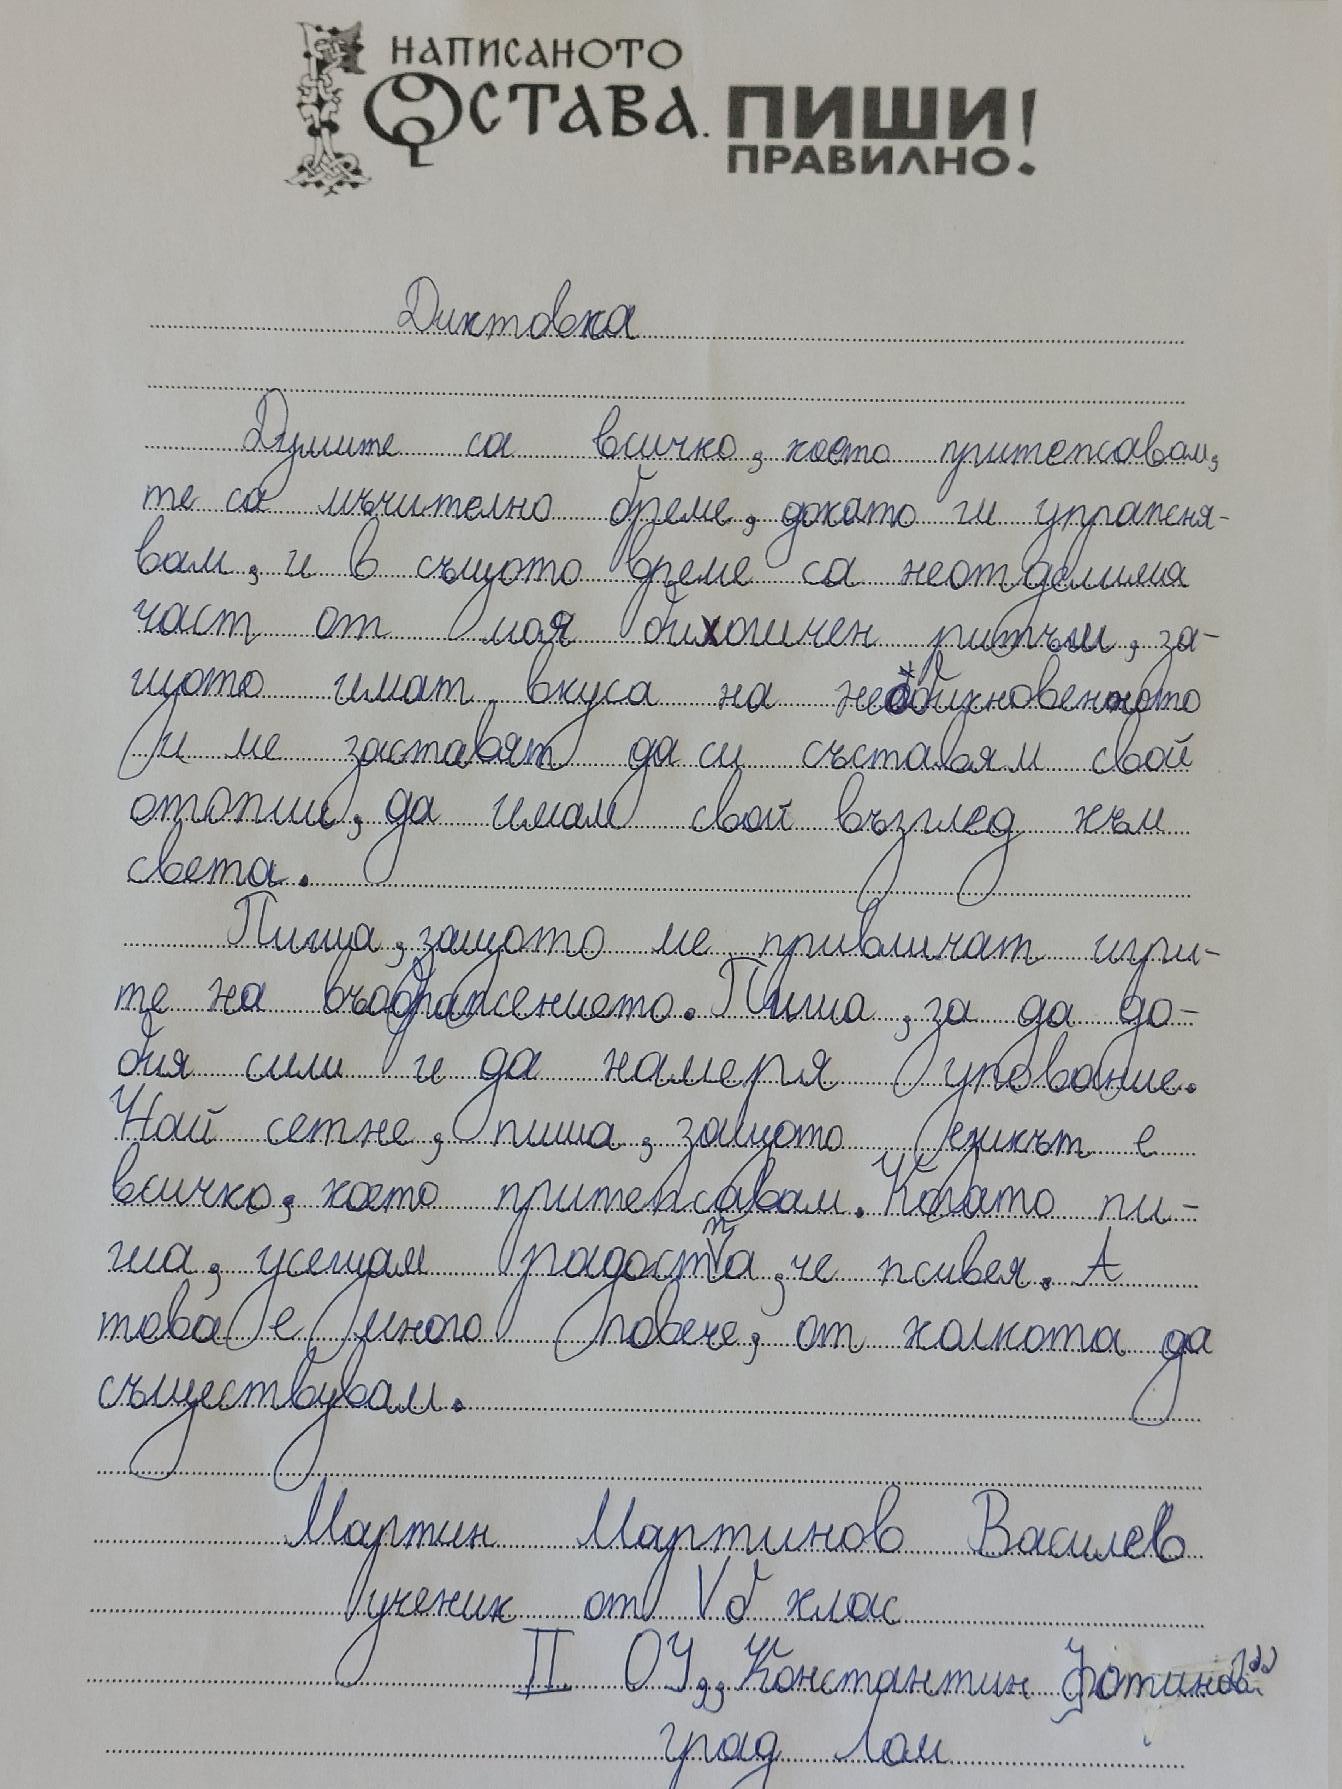 НАПИСАНОТО
ОСТАВА. ПИШИ
ПРАВИЛНО!
Диктовка
Думите са всичко, което притежавам,
те са мъчително бреме, докато ги упражня-
вам, и в същото време са неотделима
част от моя биологичен ритъм, за-
щото имат вкуса на необикновенното
и ме заставят да си съставям свой
отопии, да имам свой възглед към
света.
Пиша, защото ме привличат игри-
те на въображението. Пиша, за да до-
бия сили и да намеря упование.
Най сетне, пиша, защото езикът е
всичко, което притежавам. Когато пи-
ша, усещам радостта, че живея. А
това е много повече, от колкото да
съществувам.
Мартин Мартинов Василев
ученик от V б клас
II ОУ „Константин Фотинов"
град Лом